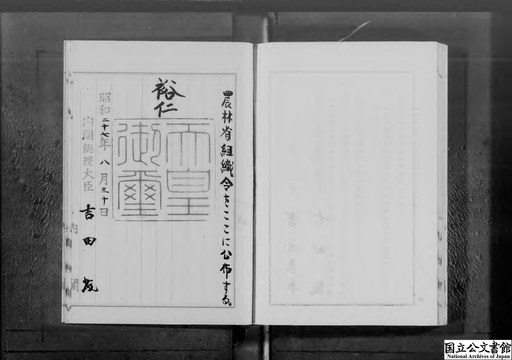 農林省組織令をここに公布する。
裕仁
天皇御璽
昭和二十七年八月三十日
内閣総理大臣
吉田茂
内閣
国立公文書館
National Archives of Japan